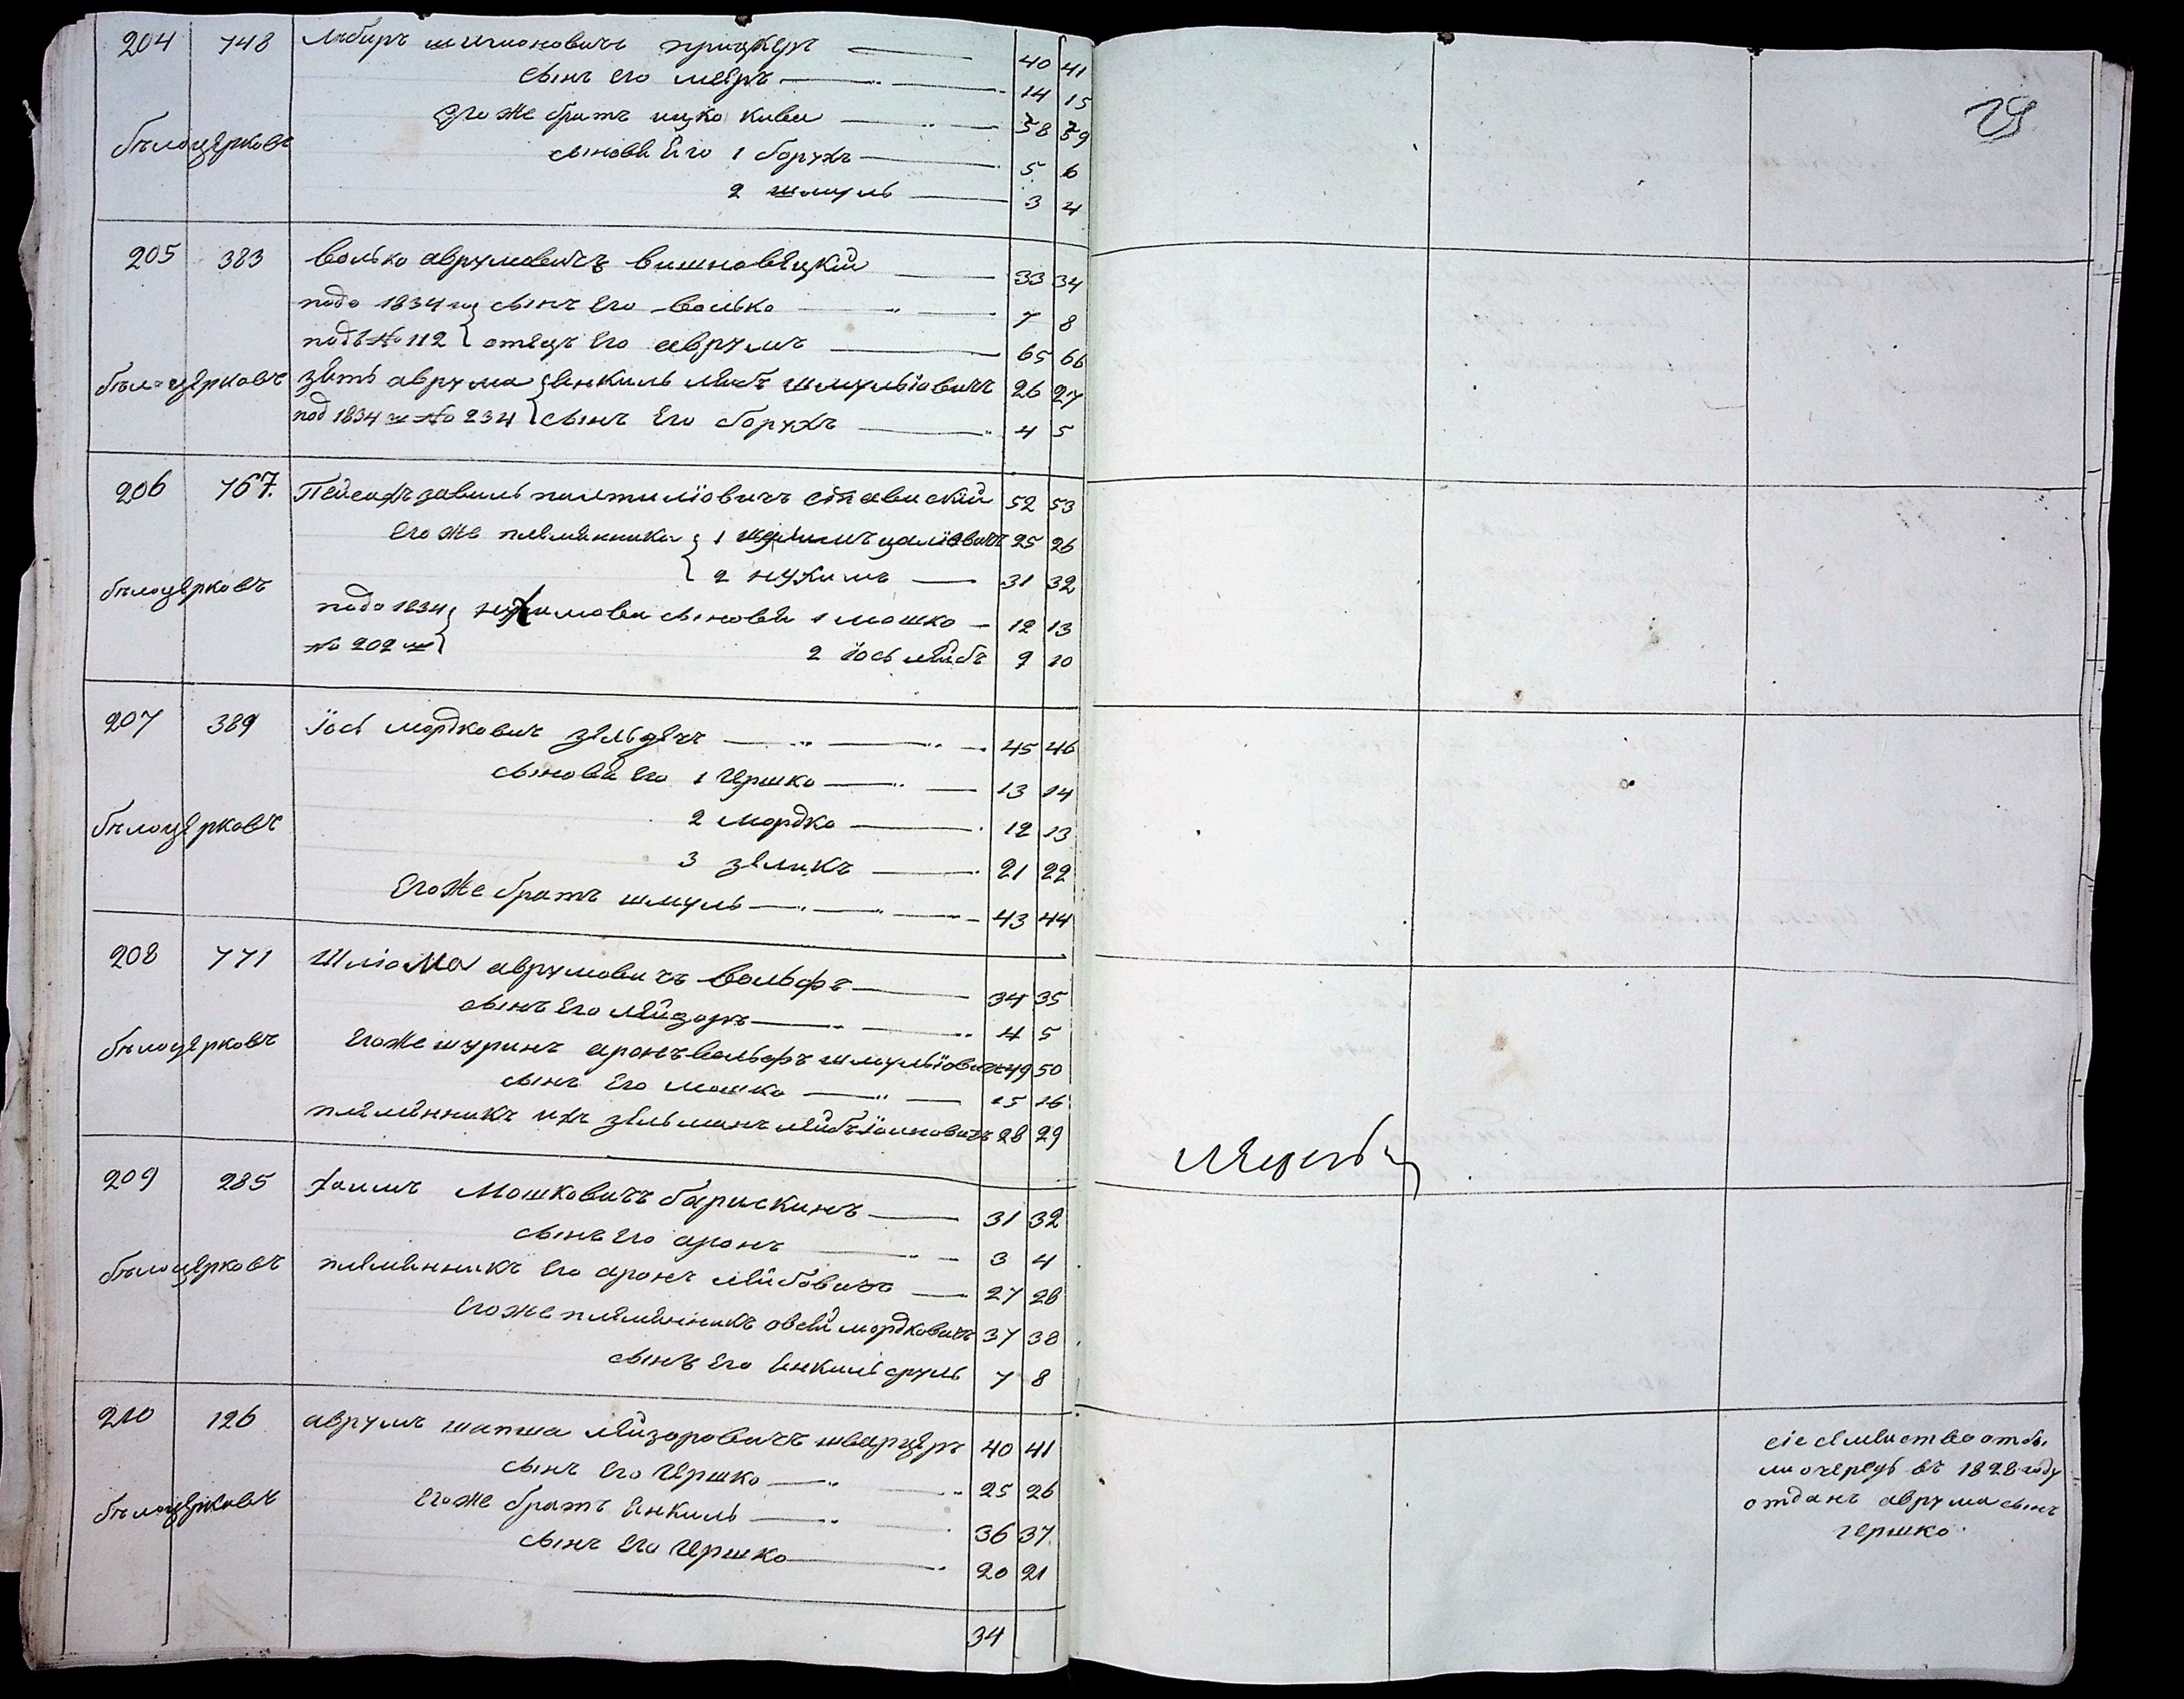 29
204 748 Лейбиръ шимоновичъ прицкеръ 40 41
сынъ его мееръ 14 15
его же братъ ицко киви 38 39
белоцерковъ
сынове его 1 борухъ 5 6
2 шмуль 3 4
205 383 волько аврумовичъ вишновецкій 33 34
подо 1834 го сынъ его волько 7 8
подъ № 112 отецъ его аврумъ 65 66
белоцерковъ зять аврума янкиль лейбъ шмульіовичъ 26 27
под 1834 м № 234 сынъ его борухъ 4 5
206 767. Пейсахъ завиль палтиліовичъ ставискій 52 53
его же племянники 1 цаліовичъ 25 26
2 нухимъ 31 32
белоцерковъ
подо 1834 нухимови сынове 1 мошко 12 13
№ 202 м 2 іось лейбъ 9 10
207 389 іось мордковичъ 45 46
сынове его 1 гершко 13 14
2 мордко 12 13
белоцерковъ
3 зеликъ 21 22
его же братъ шмуль 43 44
208 771 Шліома аврумовичъ вольфъ 34 35
сынъ его лейзоръ 4 5
белоцерковъ его же шуринъ аронъ вольфъ шмульіовичъ 49 50
сынъ его мошко 15 16
племянникъ ихъ зельманъ лейбъ 28 29
209 285 хаимъ Мошковичъ барискинъ 31 32
сынъ его аронъ 3 4
белоцерковъ племянникъ его аронъ лейбовичъ 27 28
его же племянникъ овсей мордковичъ 37 38
сынъ его янкиль сруль 7 8
210 126 аврумъ шапша лейзоровичъ шварцеръ 40 41
сынъ его гершко 25 26
белоцерковъ его же братъ янкиль 36 37.
сынъ его гершко 20 21
34
сіе семейство отбы
ли очередь въ 1828 году
отданъ аврума сынъ
гершко.